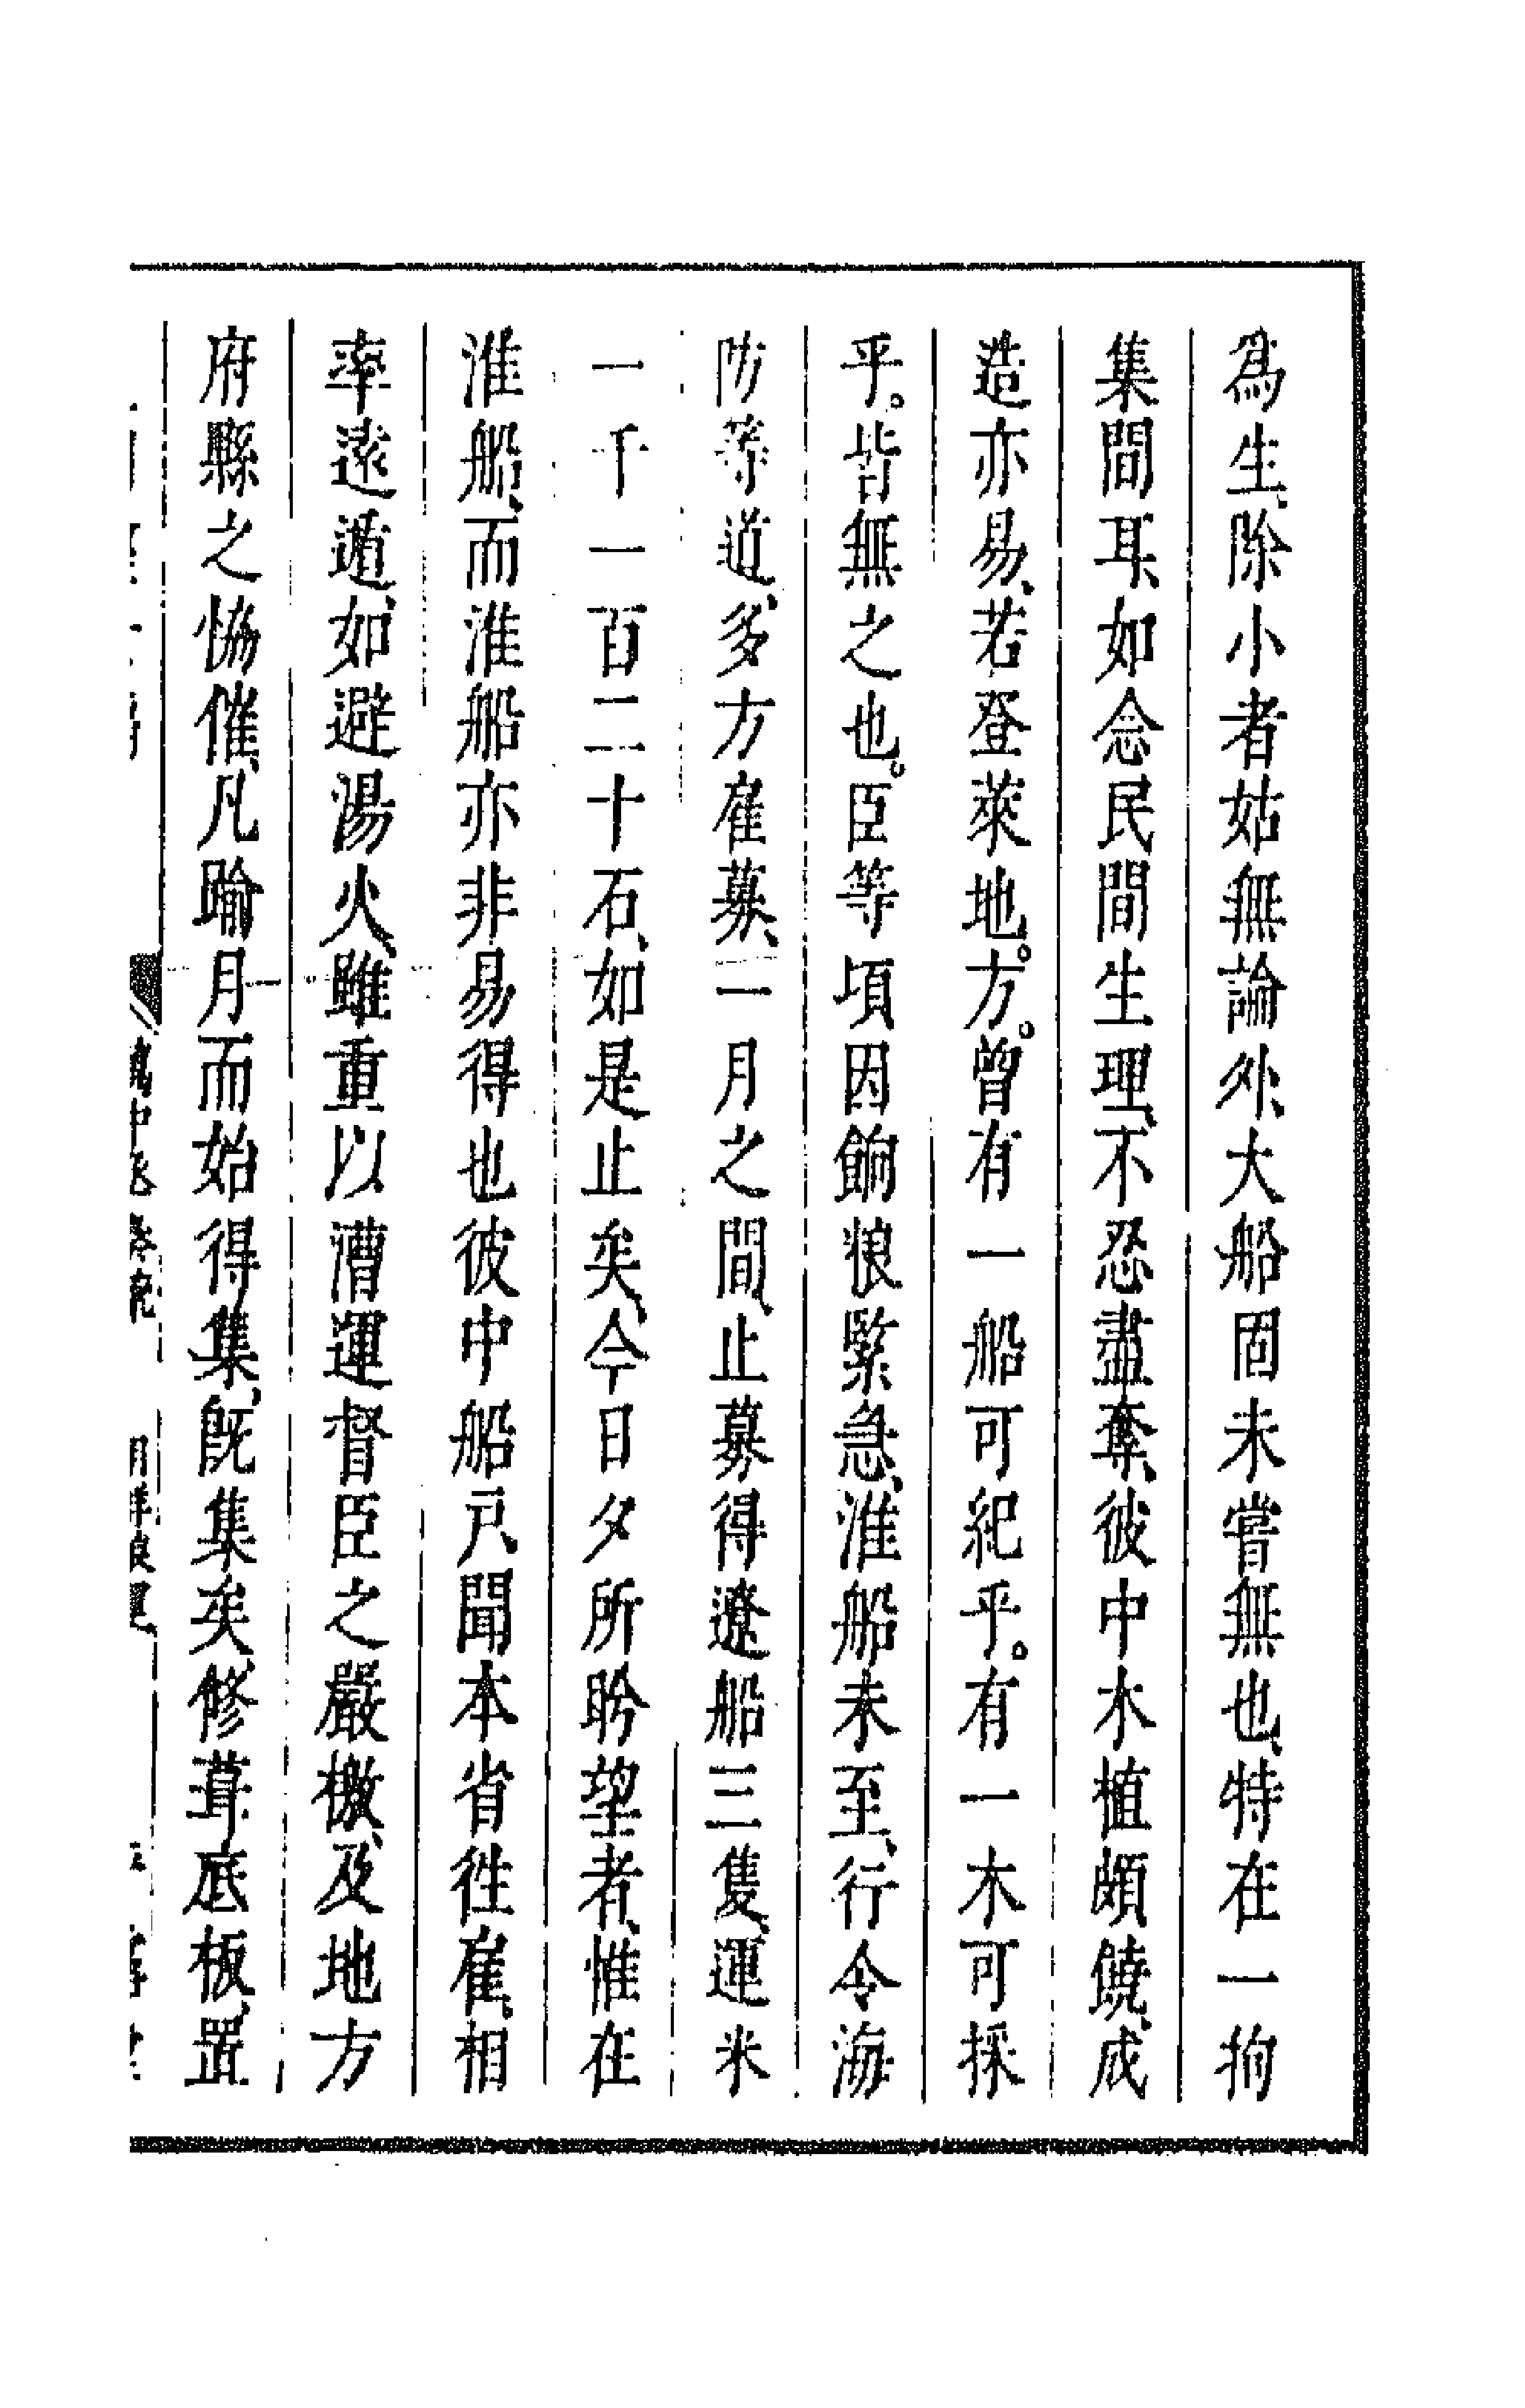 為生、除小者姑無論外、大船固未嘗無也、特在一拘
集間耳、如念民間生理、不忍盡奪、彼中木植頗饒、成
造亦易、若登萊地。方。曾有一船可紀乎。有一木可採
乎。皆無之也。臣等頃因餉粮緊急、淮船未至、行令海
防等道、多方雇募、一月之間、止募得遼船三隻、運米
一千一百二十石、如是止矣、今日夕所盻望者、惟在
淮船、而淮船亦非易得也彼中船戶聞本省徃雇、相
率逺遁、如避湯火、雖重以漕運督臣之嚴檄、及地方
府縣之恊催、凡踰月而始得集、旣集矣、修葺底板、置